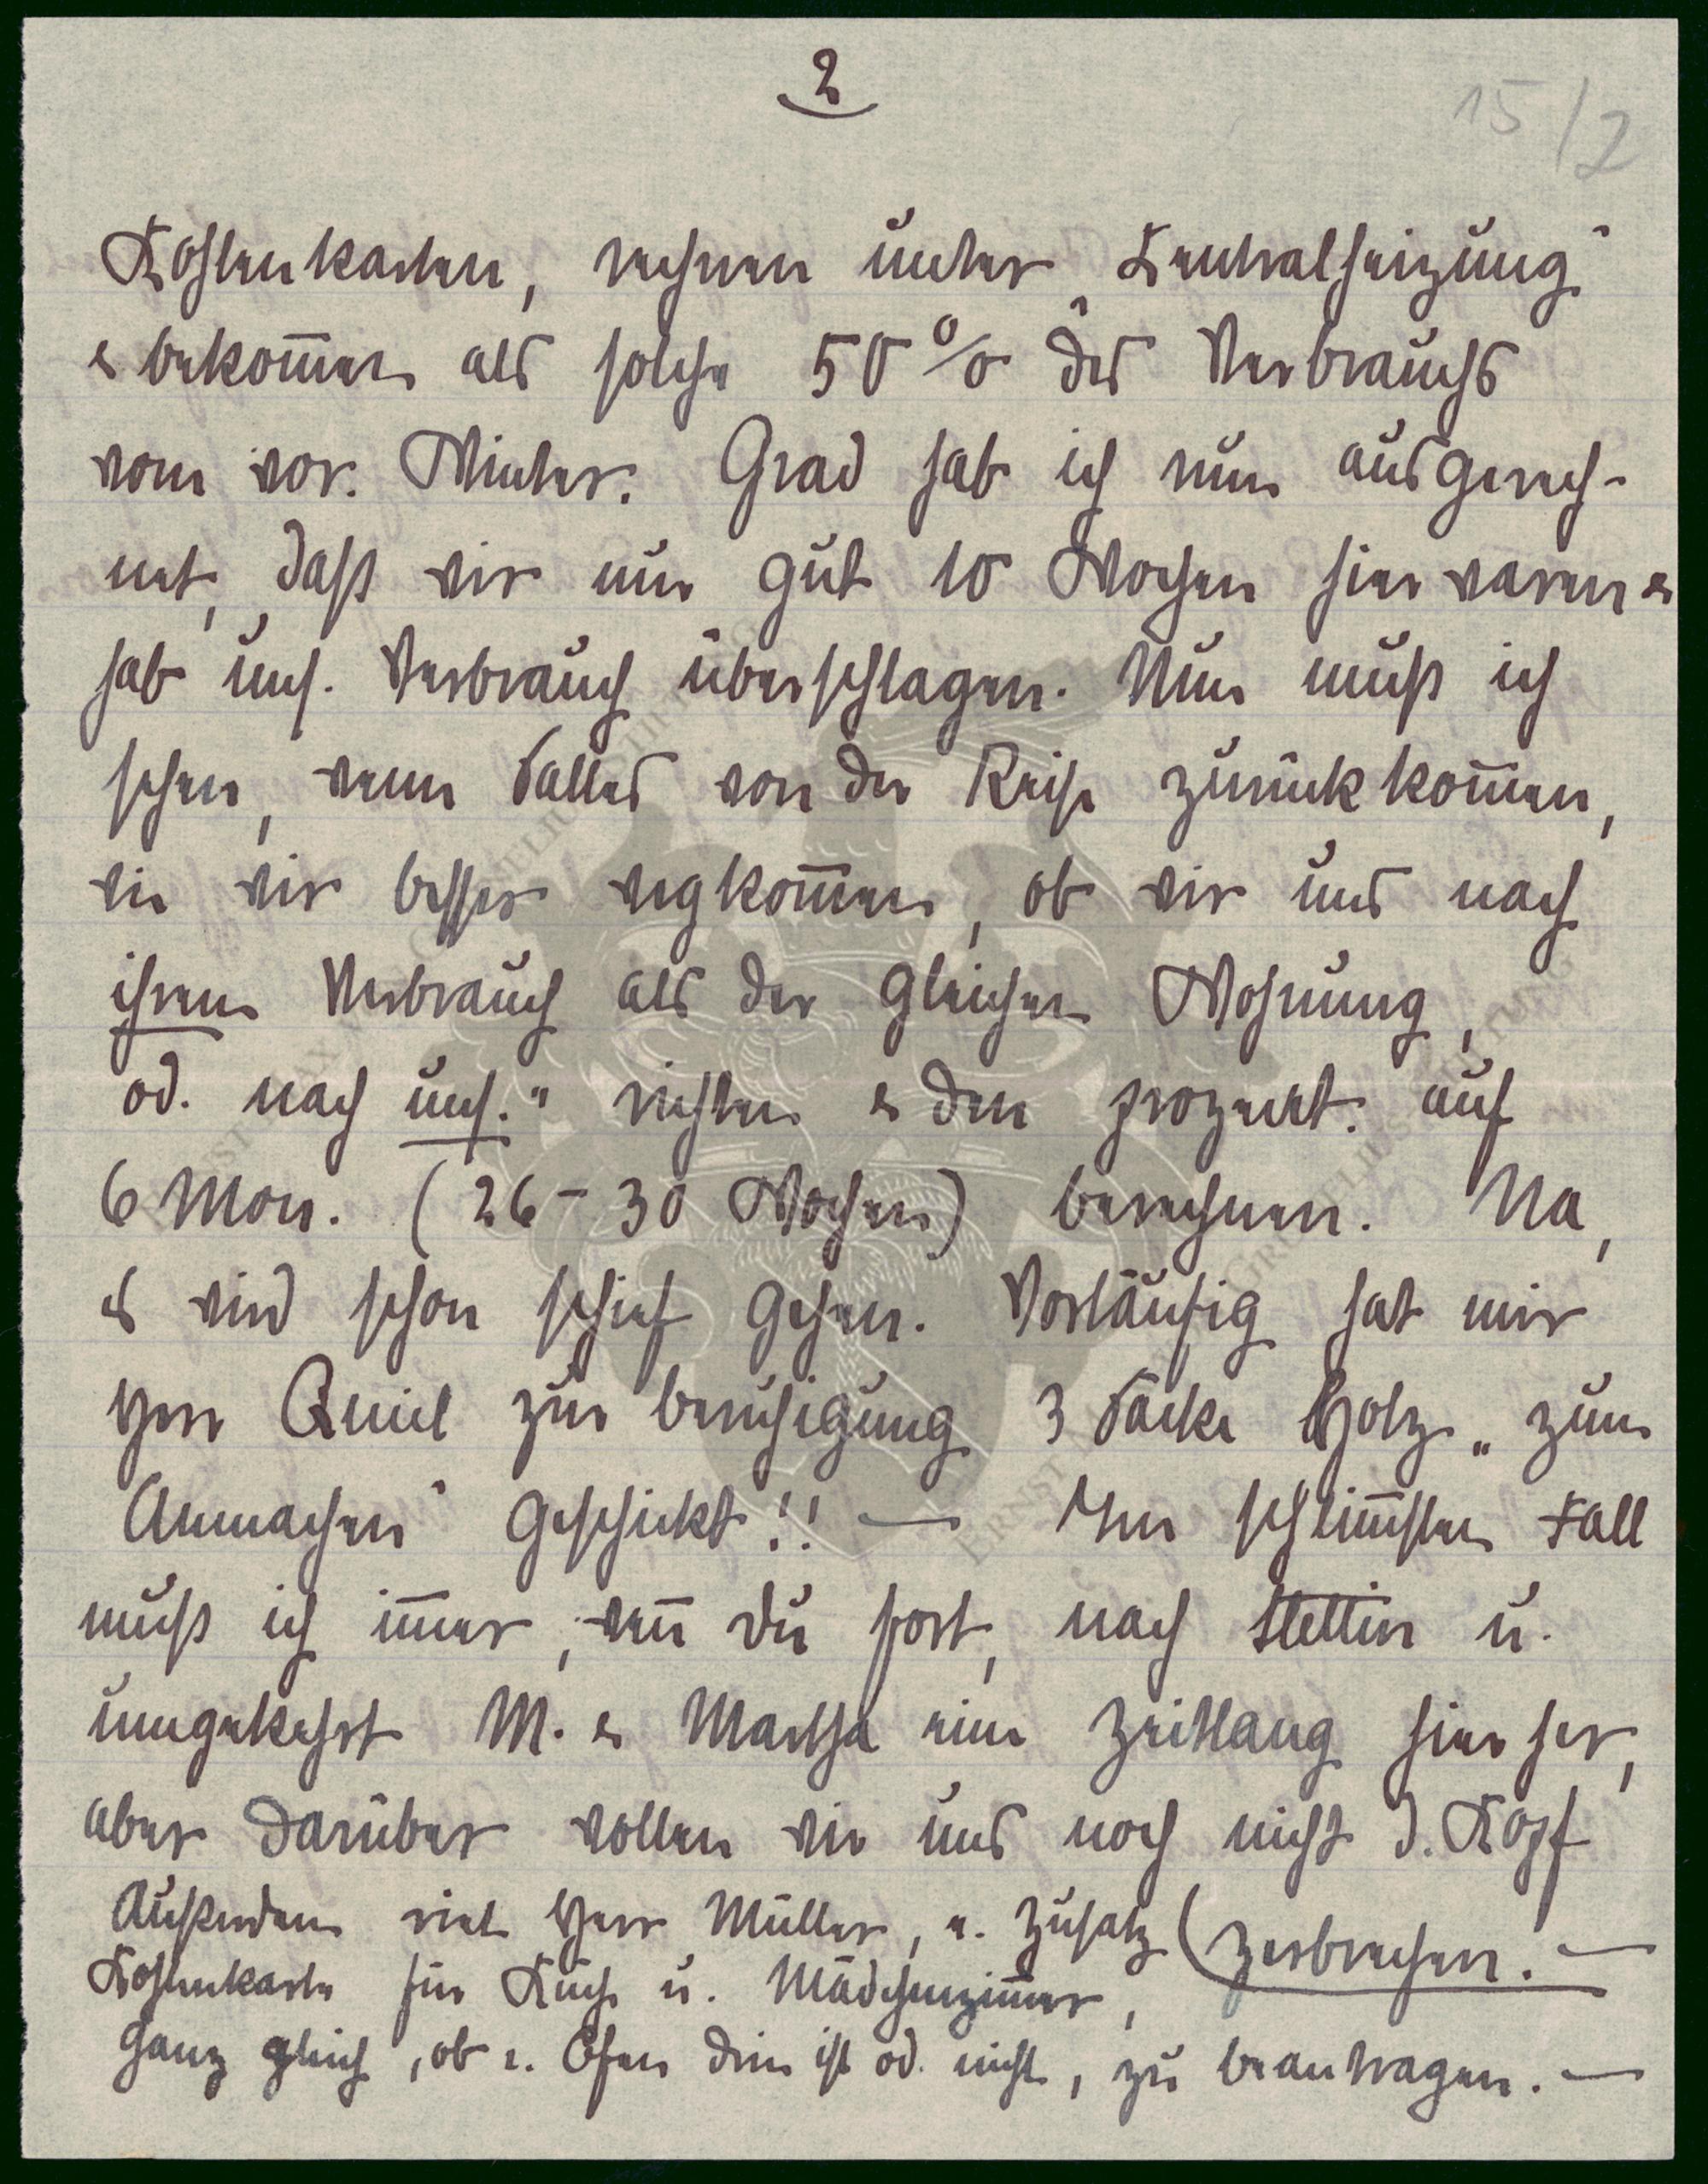 2
15/2
Kohlenkarten, rechnen unter „Zentralheizung"
& bekommen als solche 50 % des Verbrauchs
vom vor. Winter. Grad hab ich nun ausgerech-
net, daß wir nur gut 10 Wochen hier waren &
hab uns. Verbrauch überschlagen. Nun muß ich
sehen, wenn Salles von der Reise zurück kom̄en,
wie wir besser wegkom̄en, ob wir uns nach
ihrem Verbrauch als der gleichen Wohnung,
od. nach uns." richten & den prozent. auf
6 Mon. (26 – 30 Wochen) berechnen. Na,
es wird schon schief gehen. Vorläufig hat mir
Herr Quiel zur beruhigung 3 Säcke Holz „zum
Anmachen" geschickt!! — Im schlim̄sten Fall
muß ich im̄er, wen̄ Du fort, nach Stettin u.
umgekehrt M. & Martha eine Zeitlang hier her,
aber darüber wollen wir uns noch nicht d. Kopf
zerbrechen. —
Außerdem riet Herr Müller, e. Zusatz
Kohlenkarte für Küche u. Mädchenzim̄er,
ganz gleich, ob e. Ofen drin ist od. nicht, zu beantragen. —